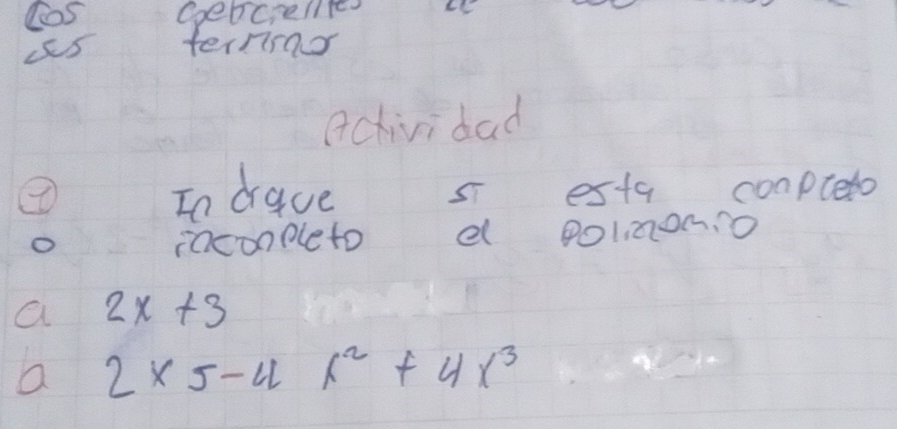 Los
ses terminos
Actividad
① Indique si esta conpleto
o inconpleto el polinomio
a 2x + 3
b 2x5 - 4x² + 4x³